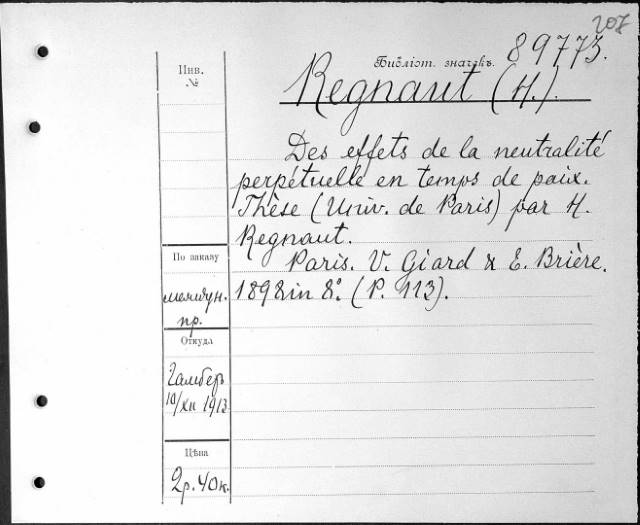 207
Инв.
№
Библіот. значекъ. 89773.
Regnaut (H.).
Des effets de la neutralité
perpétuelle en temps de paix.
Thèse (Univ. de Paris) par H.
Regnaut.
Paris. V. Giard & E. Brière.
1898 in 8º. (P. 113).
По заказу
междун.
пр.
Откуда
Гамбер
10/XII 1913
Цѣна
2р. 40к.